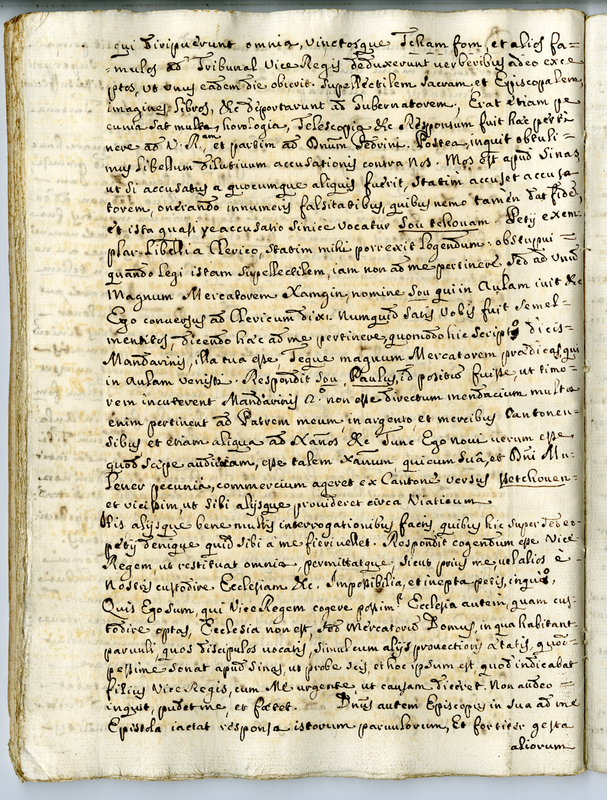 qui diripuerunt omnia, vinctosque Tcham fom, et alios fa=
=mulos ad Tribunal Vice Regis deduxerunt verberibus adeo exce
ptos, ut unus eadem die obierit. Supellectilem Sacram, et Episcopalem,
imagines Libros, &c deportarunt ad Gubernatorem, Erat etiam pe
cunia sat multa, horologia, Telescopia &c Responsum fuit haec perti
nere ad V. R.am et partim ad Dnum Pedrini. Postea, inquit obtuli=
mus Libellum dilutivum accusationis contra Nos. Mos est apud Sinas
ut si accusatus a quocumque aliquis fuerit, statim accuset accusa
torem, onerando innumeris falsitatibus, quibus nemo tamen dat fidem,
et ista quasi reaccusatio sinice vocatur Sou tchouam. Petij exem
plar Libelli a Clerico, statim mihi porrexit legendum. obstupui =
quando legi istam Supellectilem, iam non ad me pertinere sed ad unum
Magnum Mercatorem Xamgin, nomine Sou qui in Aulam ivit &c
Ego conversus ad Clericum dixi. Numquid satis vobis fuit semel=
mentitos dicendo haec ad me pertinere, quomodo hic scripto dicis=
Mandarinis, illa tua esse, Teque magnum Mercatorem praedicas, qui
in Aulam venisti. Respondit Sou, Paulus, id positum fuisse, ut timo=
rem incuterent Mandarinis 2.o non esse directum mendacium multa
enim pertinent ad Patrem meum in argento et mercibus Cantonen=
sibus et etiam aliqua ad Xanos &c Tunc Ego novi verum esse
quod saepe audieram, esse talem Xanum qui cum sua, et Dni Mu
lener pecunia, commercium ageret ex Cantone versus Petchouen=
et vicissim, ut sibi alijsque provideret circa Viaticum
His alijsque bene multis interrogationibus factis, quibus hic supersedeo
petij denique quid sibi a me fieri vellet. Respondit cogendum esse Vice
Regem ut restituat omnia, permittatque, sicut prius me vel alios è
Nostris custodire Ecclesiam &c. Impossibilia, et inepta petis, inquio,
Quis Ego sum, qui Vice Regem cogere possim? Ecclesia autem, quam cus=
todire optas, Ecclesia non est, sed Mercatoris Domus, in qua habitant
parvuli, quos discipulos vocatis, simul cum alijs provectioris aetatis, quod=
pessime sonat apud Sinas, ut probe scis, et hoc ipsum est, quod indicabat
filius Vice Regis, cum Me urgente, ut causam diceret. Non audeo =
inquit, pudet me, et foetet. Dnus autem Episcopus in sua ad me
Epistola iactat responsa istorum parvulorum, Et fortiter gesta
aliorum